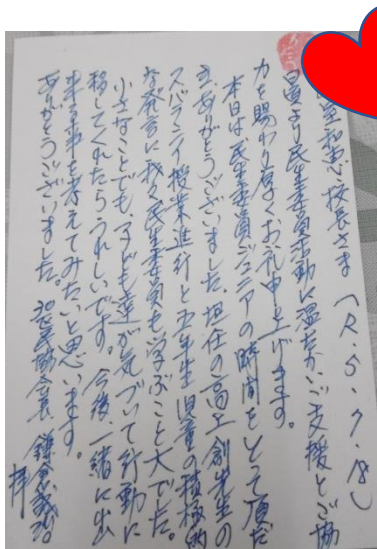 和恵校長さま (R.5.7.18)
日頃より民生委員活動に温たかいご支援とご協
力を賜わり厚くお礼申し上げます。
本日は民生委員ジュニアの時間をとって頂だ
き、ありがとうございました。担任の高工創先生の
スバラシイ授業進行と五年生児童の積極的
な発言に我々民生委員も学ぶこと大でした。
小さなことでも、子ども達が気づいて行動に
移してくれたらうれしいです。今後、一緒に出
来る事を考えてみたいと思います。
ありがとうございました。 民協会長 鎌倉
拝